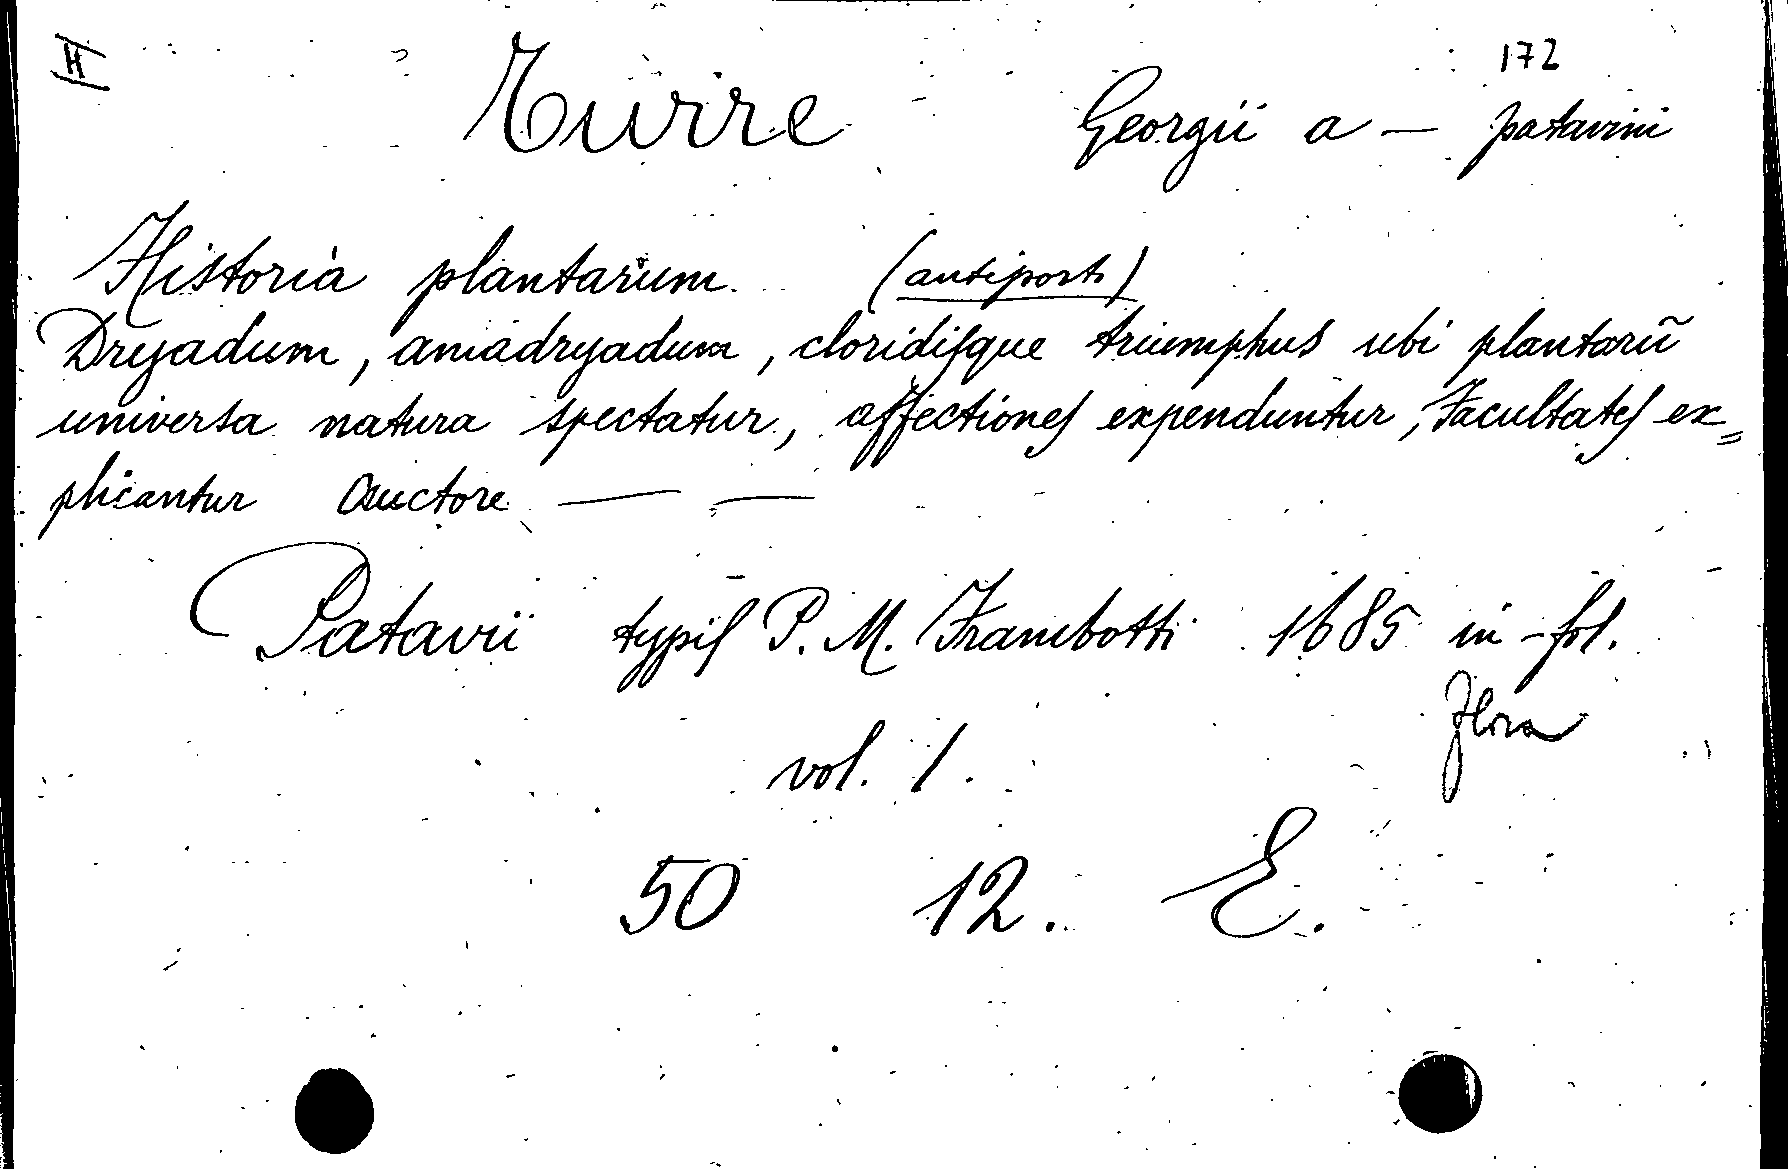 II 172
Turre Georgii a — patavini
Historia plantarum (antiporti)
Dryadum, amadryadum, cloridisque triumphus ubi plantarũ
universa natura spectatur, affectiones expenduntur, Facultates ex=
plicantur Auctore — —
Patavii typis P. M. Frambotti 1685 in-fol.
Flora
vol. 1.
50 12. E.